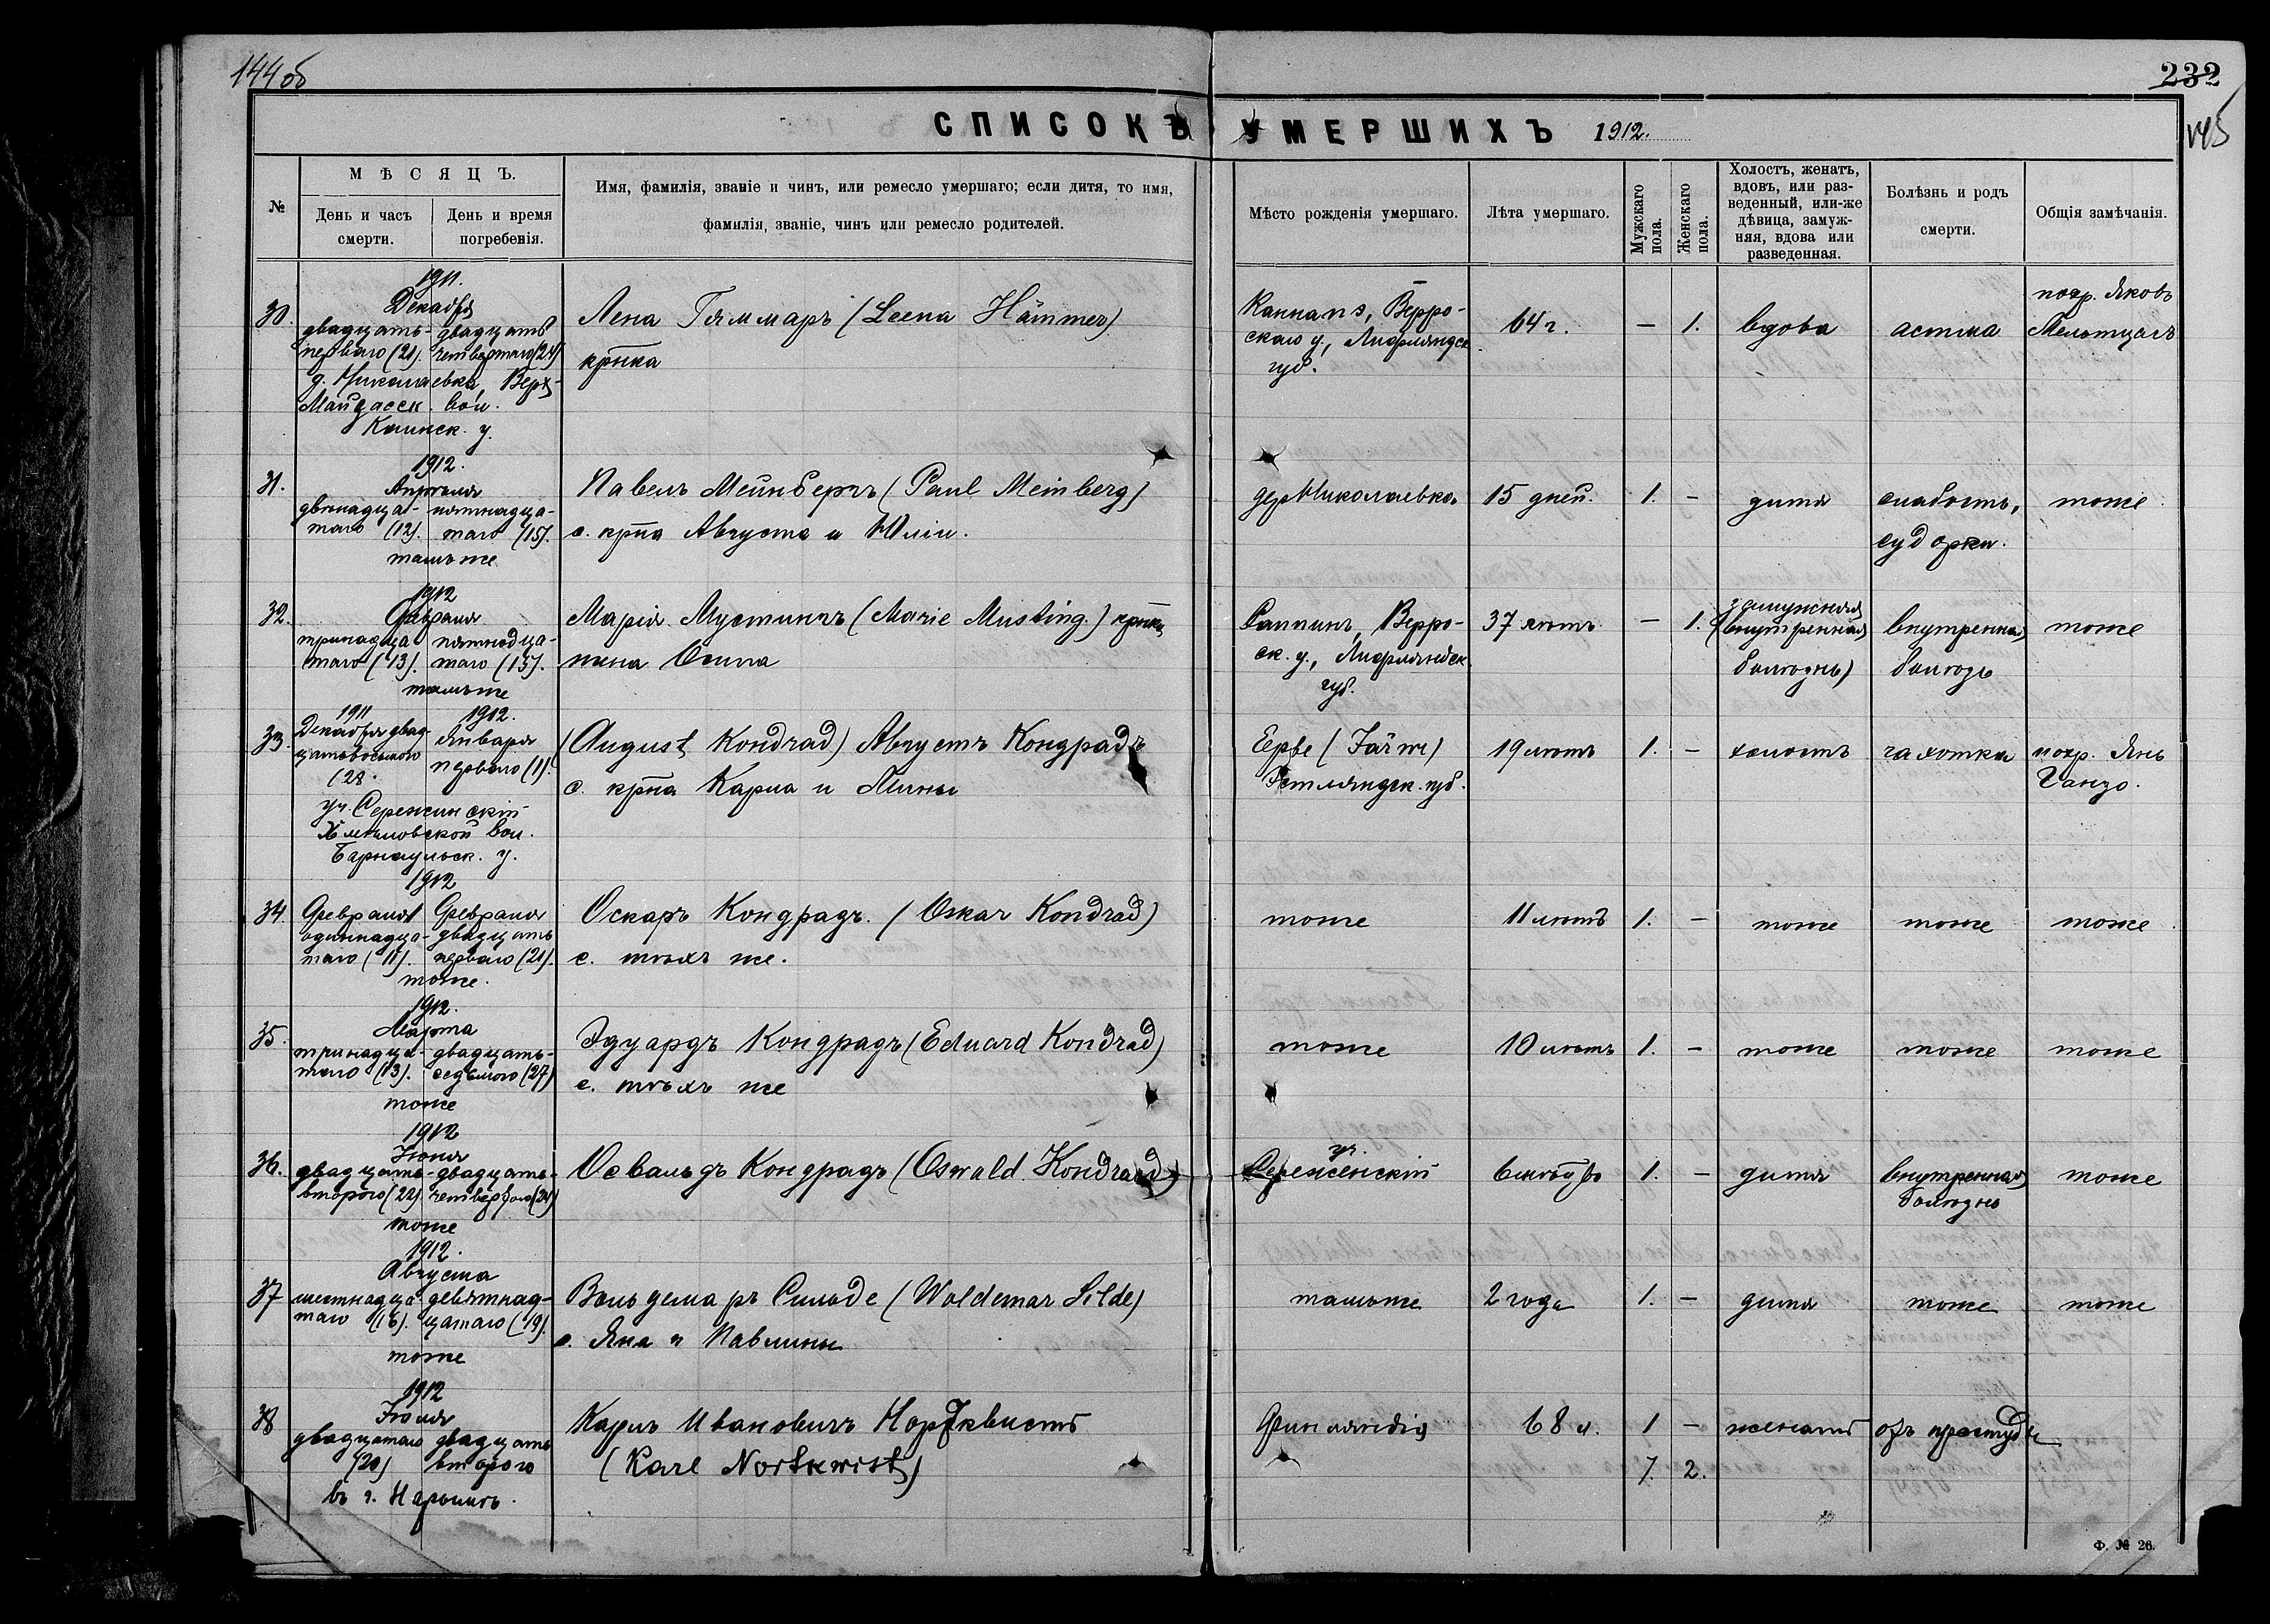 144 об
232
145
СПИСОКЪ УМЕРШИХЪ 1912.
№
МѢСЯЦЪ.
День и часъ смерти.
День и время погребенія.
Имя, фамилія, званіе и чинъ, или ремесло умершаго; если дитя, то имя,
фамилія, званіе, чинъ или ремесло родителей.
Мѣсто рожденія умершаго.
Лѣта умершаго.
Мужскаго пола.
Женскаго пола.
Холостъ, женатъ,
вдовъ, или раз-
веденный, или-же
дѣвица, замуж-
няя, вдова или
разведенная.
Болѣзнь и родъ
смерти.
Общія замѣчанія.
30.
1911.
Декабря
двадцать- двадцать
перваго (21). четвертаго (24)
д. Николаевка, Верх-
Майдасск. вол.
Каинск. у.
Лена Гяммаръ (Leena Hämmer)
крѣпка
Верро-
скаго у., Лифляндск.
губ.
64 г.
— 1.
вдова
астма
погр. Яковъ
Мельтцаръ
31.
1912.
Апрѣля
двѣнадца- пятнадца-
таго (12). таго (15).
тамъ же
Павелъ Мейнбергъ (Paul Meinberg)
с. крна Августа и Юліи.
дер Николаевка
15 дней.
1. —
дитя
слабость,
судорки.
тоже
32.
1912
Февраля
тринадца пятнадца-
таго (13). таго (15).
тамъ же
Марія Мустингъ (Marie Musting.)
жена Осипа
Раппинъ, Верро-
ск. у., Лифляндск.
губ.
37 лѣтъ
— 1.
замужняя
(внутренная
болѣзнь)
внутренная
болѣзь
тоже
33.
1911 1912.
Декабря двад- Января
цатьвосьмого перваго (1).
(28.
уч. Сережинскій
Хмѣлловской вол.
Барнаульск. у.
(August Kondrad) Августъ Кондрадъ
с. крна Карла и Лины
Ерве (Järve)
Эстляндск. губ.
19 лѣтъ
1. —
холостъ
чахотка
погр. Янъ
Ганзо.
34.
1912
Февраля Февраля
одиннадца- двадцать
таго (11). перваго (21).
тоже.
Оскаръ Кондрадъ. (Oskar Kondrad)
с. тѣхъ же.
тоже
11 лѣтъ
1. —
тоже
тоже
тоже
35.
1912.
Марта
тринадца- двадцать-
таго (13). седьмого (27)
тоже
Эдуардъ Кондрадъ (Eduard Kondrad)
с. тѣхъ же
тоже
10 лѣтъ
1. —
тоже
тоже
тоже
36.
1912
Іюня
двадцать- двадцать-
второго (22). четвертаго (24)
тоже
Освальдъ Кондрадъ (Oswald Kondrad)
уч.
Сереженскій
1. —
дитя
внутренная
болѣзнь
тоже
37
1912.
Августа
шестнадца- девятнад-
таго (16). цатаго (19).
тоже
Вольдемаръ Сильде (Woldemar Silde)
с. Яна и Павлины
тамъ же
2 года
1. —
дитя
тоже
тоже
38
1912
Іюля
двадцатаго двадцать
(20) второго
въ г. Нарымѣ.
Карлъ Ивановичъ Нортквистъ
(Karl Nortkwist)
Финляндія
68 л.
1 —
женатъ
отъ простуды
7. 2.
Ф. № 26.